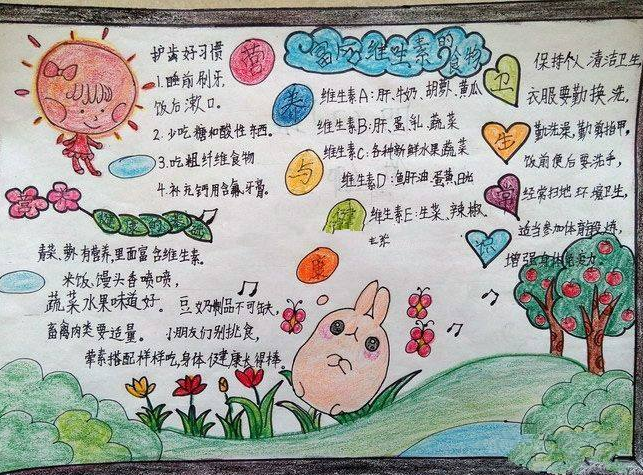 护齿好习惯
1.睡前刷牙,
饭后漱口。
2.少吃糖和酸性东西。
3.吃粗纤维食物
4.补充钙用含氟牙膏。
营
养
与
健
康
维生素的食物
维生素A:肝、牛奶、胡萝、黄瓜
维生素B:肝、蛋、乳、蔬菜
维生素C:各种新鲜水果蔬菜
维生素D:鱼肝油、蛋黄、
维生素E:生菜、辣椒.
卫
生
常
识
保持个人清洁卫生,
衣服要勤换洗,
勤洗澡,勤剪指甲,
饭前便后要洗手,
经常扫地环境卫生,
适当参加体育锻炼,
增强身体免疫力
营
养
青菜、有营养,里面富含维生素。
米饭、馒头香喷喷,
蔬菜水果味道好。豆奶制品不可缺,
畜禽肉类要适量。小朋友们别挑食,
荤素搭配样样吃,身体健康长得棒。